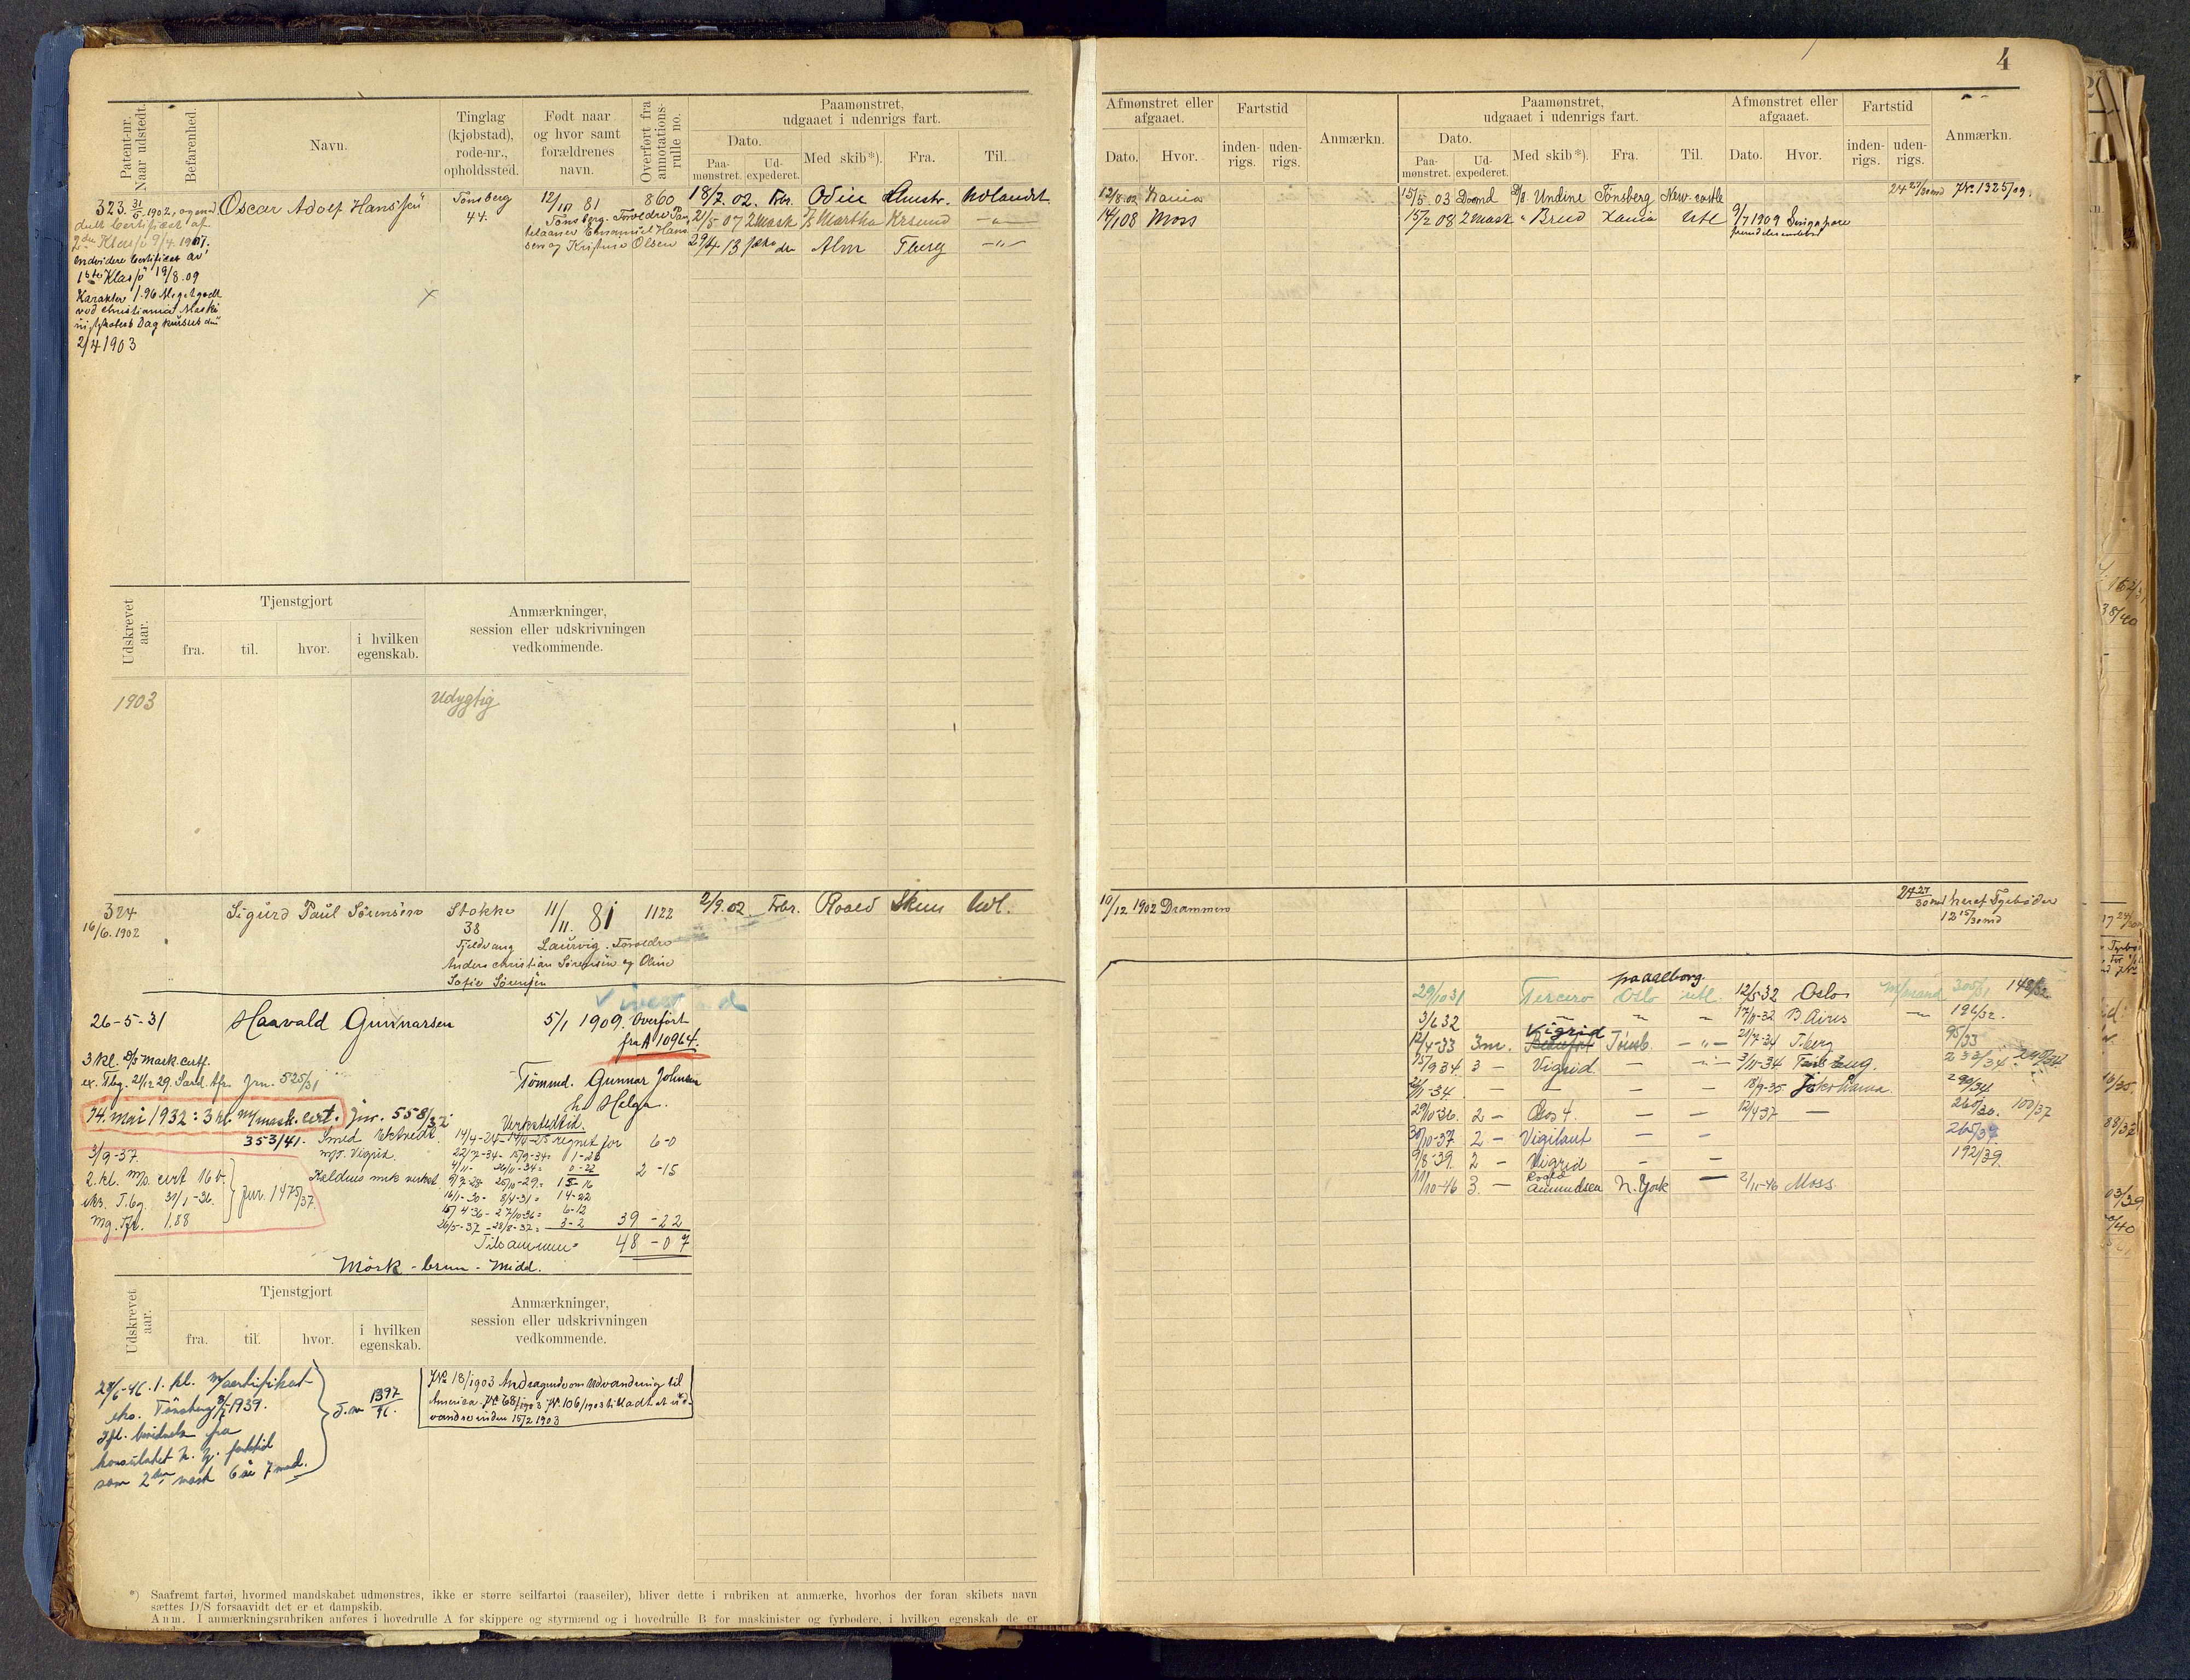 4
Patent-nr. Naar udstedt.
Befarenhed.
Navn.
Tinglag (kjøbstad), rode-nr., opholdssted.
Født naar og hvor samt forældrenes navn.
Overført fra annotations-rulle no.
Paamønstret, udgaaet i udenrigs fart.
Dato.
Paa-mønstret.
Ud-expederet.
Med skib*).
Fra.
Til.
Afmønstret eller afgaaet.
Dato.
Hvor.
Fartstid
inden-rigs.
uden-rigs.
Anmærkn.
Paamønstret, udgaaet i udenrigs fart.
Dato.
Paa-mønstret.
Ud-expederet.
Med skib*).
Fra.
Til.
Afmønstret eller afgaaet.
Dato.
Hvor.
Fartstid
inden-rigs.
uden-rigs.
Anmærkn.
323. 31/5 1902, ogsaa
Certificat af
2den Klasse 9/4. 1907.
endvidere Certificat av
1ste Klasse 19/8.09
Karakter 1.96 Meget godt
ved Christiania Maski
Dagkursus den
2/4 1903
Oscar Adolf Hanssen
Tønsberg
44.
12/10 81
Tønsberg. Forældre
Emanuel Hans
sen og Kristine Olsen
860
18/7. 02. Fbr. Odin
21/5 07 2 Mask Martha Krsund -"-
29/4 13 Alm Tberg -"-
12/8.02 Xania
14/1 08 Moss
15/5. 03 D/S. Undine Tönsberg New-castle
15/2 08 2 Mask " Xania Utl
9/7 1909 Singapore
24 27/30 md J.No. 1325/09.
Udskrevet aar.
Tjenstgjort
fra.
til.
hvor.
i hvilken egenskab.
Anmærkninger, session eller udskrivningen vedkommende.
1903
Udygtig
324
16/6. 1902
Sigurd Paul Sörensen
Stokke
38
Fjeldvang
11/11. 81
Laurvig. Forældre
Anders Christian Sörensen og Oline
Sofie Sörensen
1122
2/9. 02. Fbr. Roald Skien Utl.
10/12 1902 Drammen
24 27/30 md heraf Fyrböder
12 15/30 md
26-5-31
Haavald Gunnarsen
5/1 1909. Overført
fra A 10964.
Tömmd. Gunnar Johnsen
h. Helga.
3 kl. D/S mask. certf.
ex. Tbg. 21/12 29 Jrn. 525/31
14. mai 1932: 3 kl. M/mask. cert. Jnr. 558/32
353/41.
Verkstedtid.
14/4-24 - 14/4-25 regnet for 6-0
M/T. Vigrid. 22/7-34 - 15/9-34 = 1-26
4/11 - 26/11-34 = 0-22 2-15
Kaldnes mek verksted 9/7-28 25/10-29 = 15-16
16/1-30 - 8/4-31 = 14-22
15/4-36 - 27/10-36 = 6-12
26/5-37 - 28/8-37 = 3-2 39-22
Tilsammen = 48-07
3/9-37.
2. kl. M/s. cert 16 b.
eks. T.bg. 31/1-36.
mg. tfr. 1,88
Jnr. 1475/37.
Mörk - brun - Midd.
29/10 31 Tercero Oslo utl. 12/5-32 Oslo
pa aalborg.
3/6 32 17/11-32 B. Aires 196/32.
12/4-33 3m. Vigrid Tönsb. -"- 21/7-34 T.berg 95/33
15/9 34 3 - Vigrid - -"- 3/11-34 233/34
26/11-34 - - - 18/9-35 Yokohama 290/34
29/10-36. 2 - 4. - - 12/4 37 - 260/36. 100/37
30/10-37 2 - Vigilant - - 265/37
9/8-39. 2 - Vigrid - - 192/39
11/10-46 3. - Roald Amundsen N. York - 2/11-46 Moss.
Udskrevet aar.
Tjenstgjort
fra.
til.
hvor.
i hvilken egenskab.
Anmærkninger, session eller udskrivningen vedkommende.
28/6-46. 1. kl. M/certifikat
eks. Tönsberg 1939.
Ifl. bevidnels fra
konsulatet N. Y. fartstid
som 2den mask 6 år 7 mnd.
J.nr 1397/46.
J.No 18/1903 Andragende om Udvandring til
America. J.No. 68/1903 J.No. 106/1903 tilladt at ud-
vandre inden 15/2 1903
*) Saafremt fartøi, hvormed mandskabet udmønstres, ikke er større seilfartøi (raaseiler), bliver dette i rubriken at anmærke, hvorhos der foran skibets navn
sættes D/S forsaavidt det er et dampskib.
Anm. I anmærkningsrubriken anføres i hovedrulle A for skippere og styrmænd og i hovedrulle B for maskinister og fyrbødere, i hvilken egenskab de er